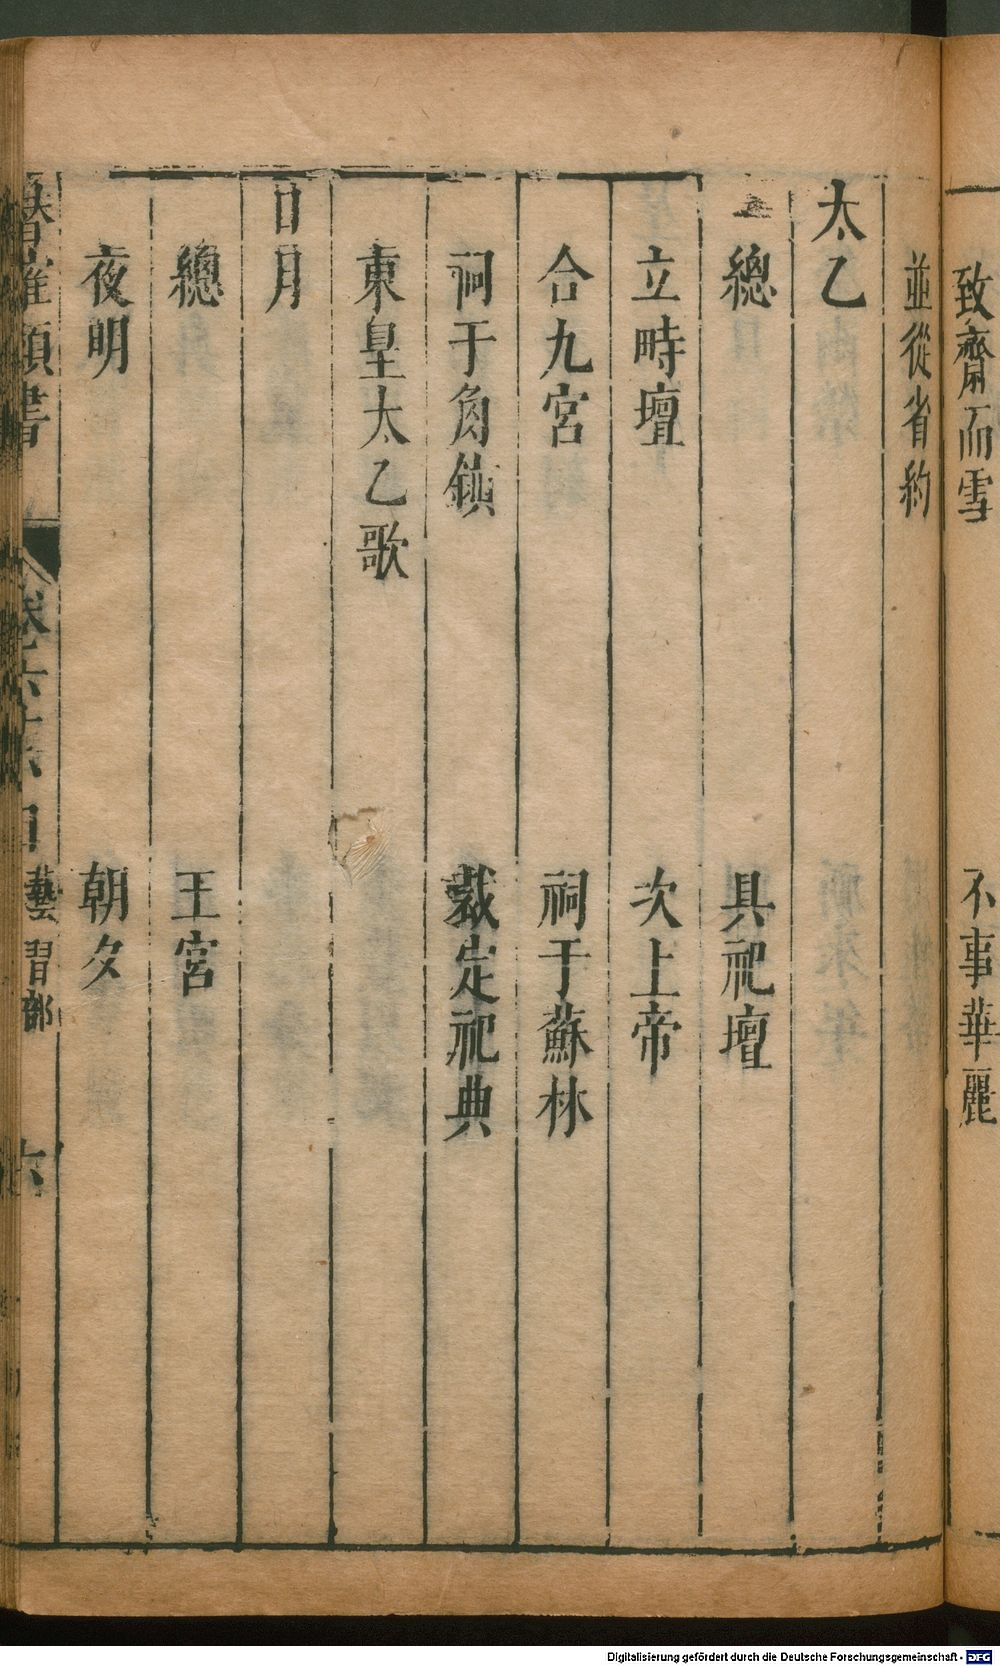 致齋而雪　不事華麗
並從省約
太乙
總　具祀壇
立畤壇　次上帝
合九宮　祠于蘇林
祠于角鎮　裁定祀典
東皇太乙歌
日月
總　王宮
夜明　朝夕
潛確類書　卷六十六目　藝習部　六
Digitalisierung gefördert durch die Deutsche Forschungsgemeinschaft - DFG